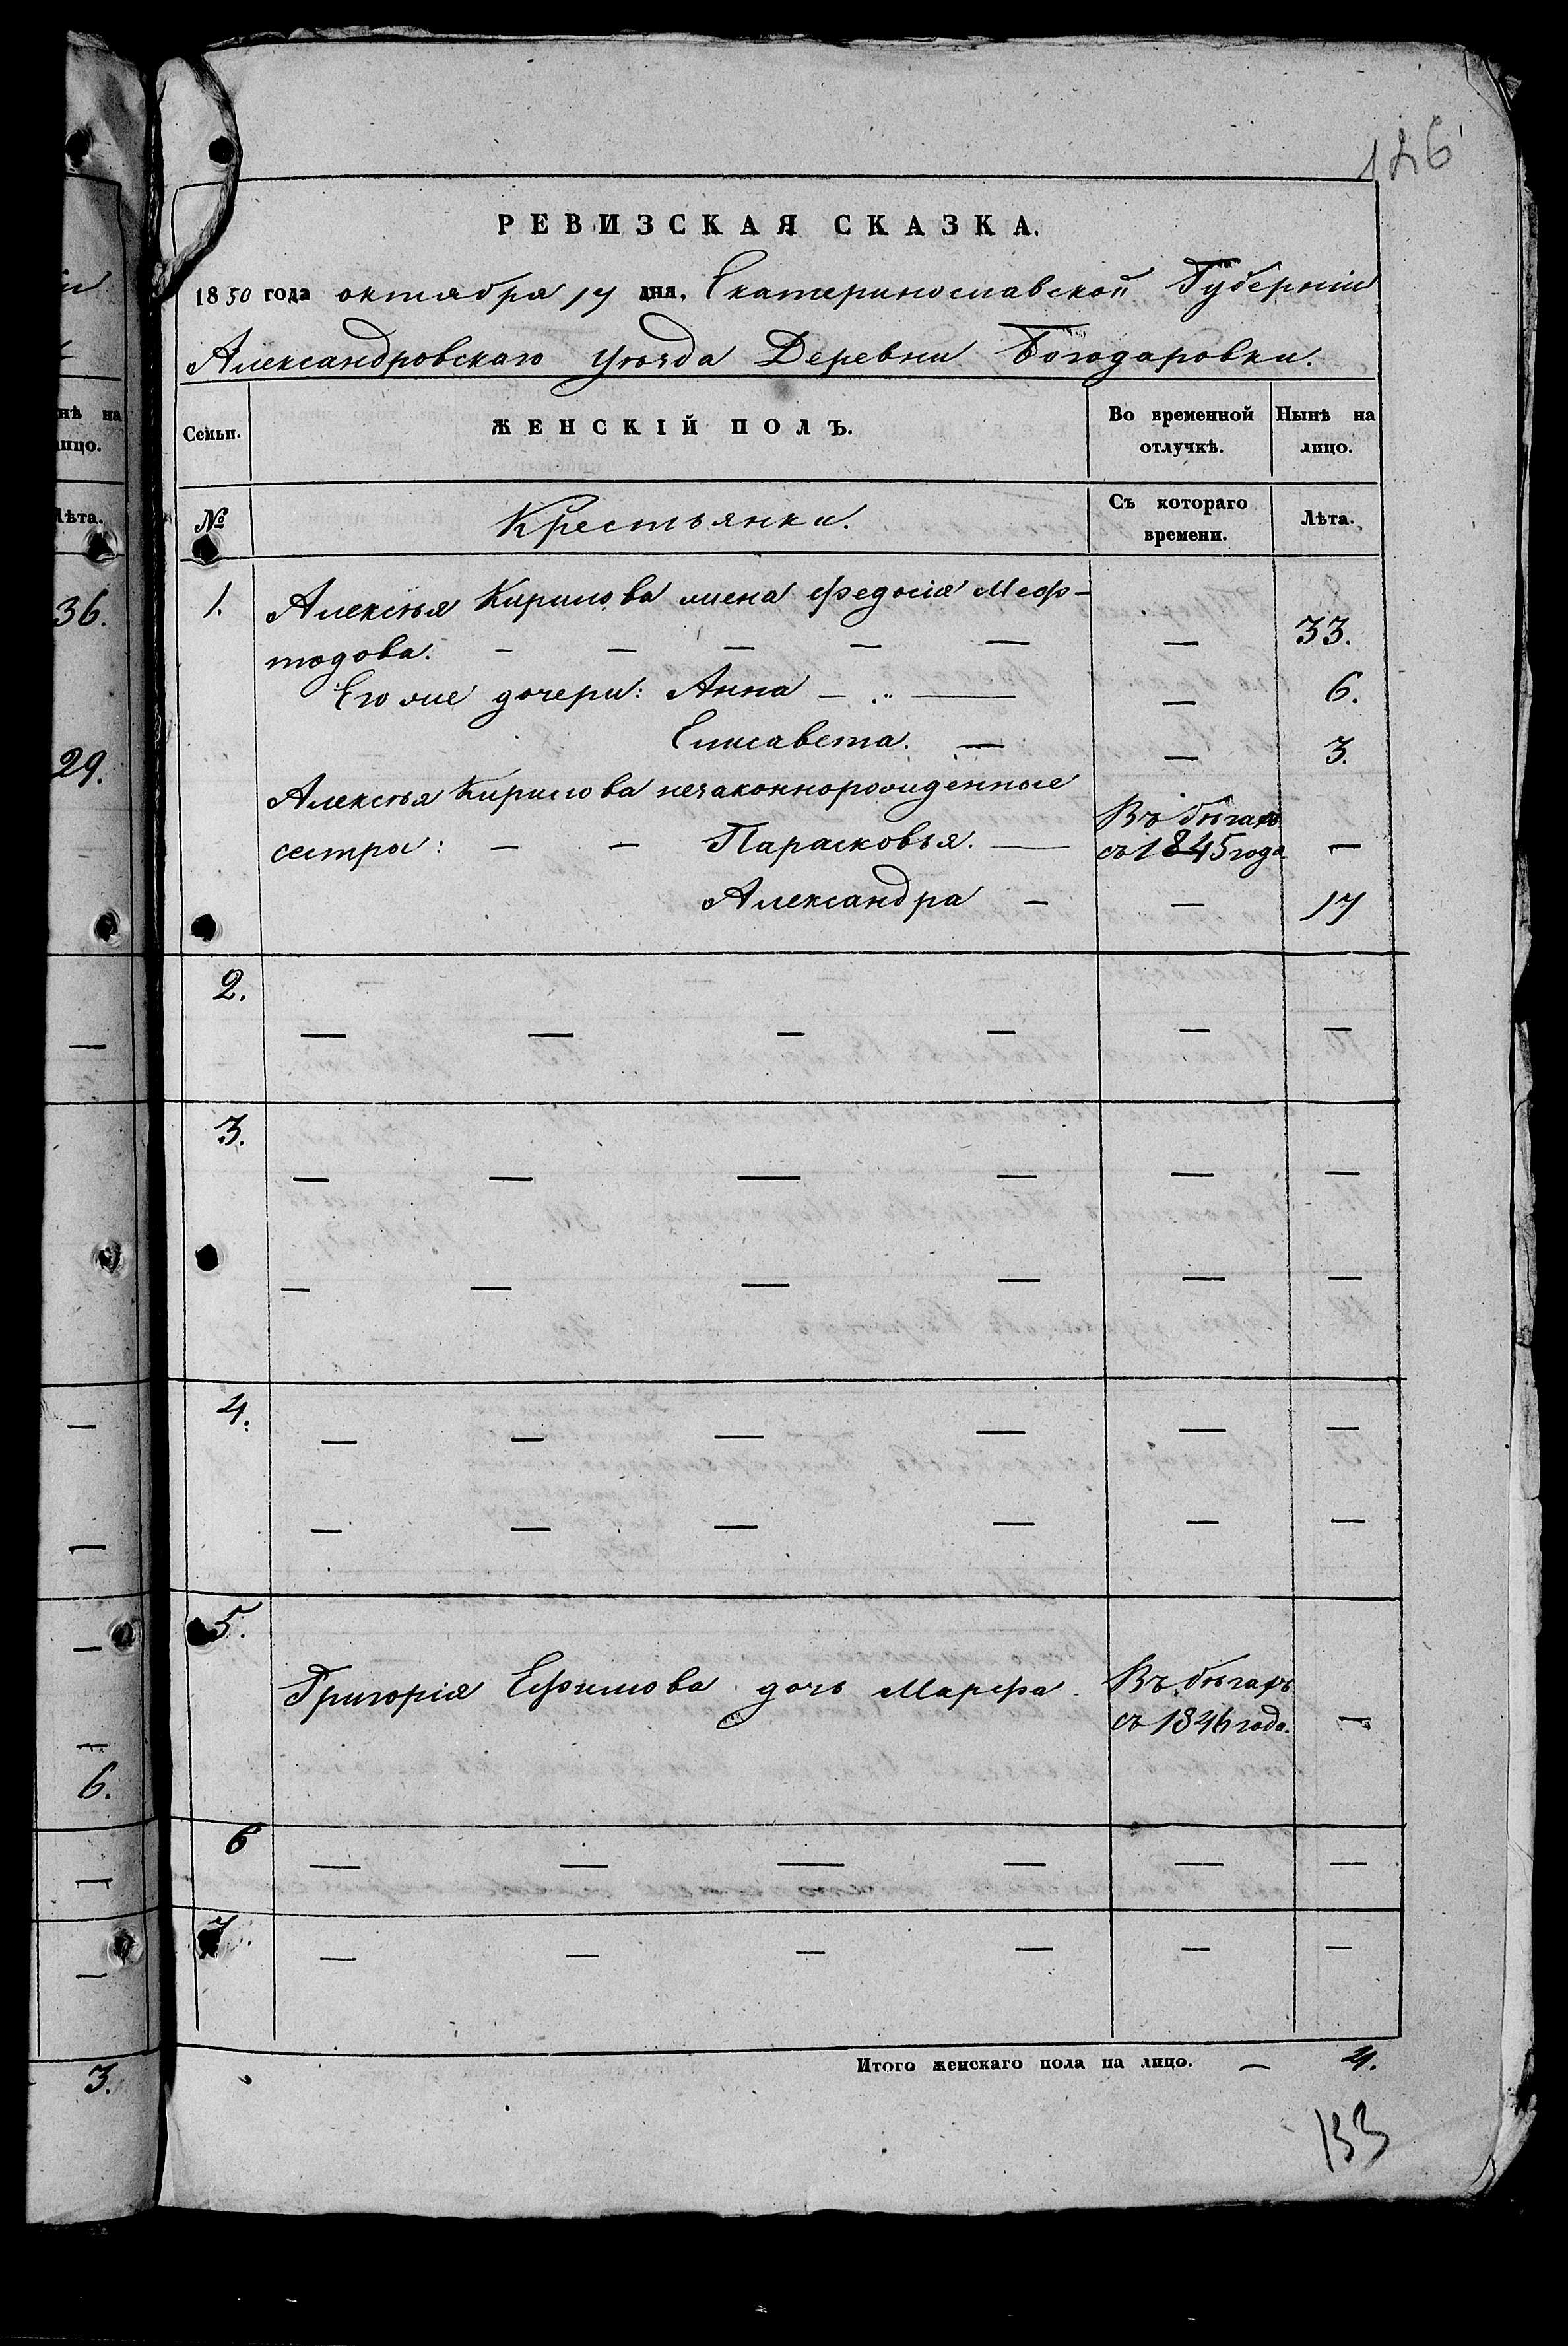 126
РЕВИЗСКАЯ СКАЗКА.
1850 года октября 17 дня, Екатеринославской Губерніи
Александровскаго Уѣзда Деревни Богодаровки.
нѣ на
лицо.
Семьи.
ЖЕНСКІЙ ПОЛЪ.
Во временной отлучкѣ.
Нынѣ на лицо.
Лѣта.
№
Крестьянки.
Съ котораго времени.
Лѣта.
36.
1. Алексѣя Кирилова жена Федосія Меф-
тодова. — — — — — — 33.
Его же дочери: Анна — „ — — 6.
29.
Елисавета. — — 3.
Алексѣя Кирилова незаконнорожденные
сестры: — — Парасковья. — Въ бѣгахъ съ 1845 года —
Александра — — 17
2. — — — — — —
3. — — — — — —
— — — — — —
4. — — — — — —
— — — — — —
5.
Григорія Ефимова дочь Марфа. Въ бѣгахъ съ 1846 года. —
6.
6 — — — — — —
7. — — — — — —
Итого женскаго пола на лицо. — 4.
3.
133